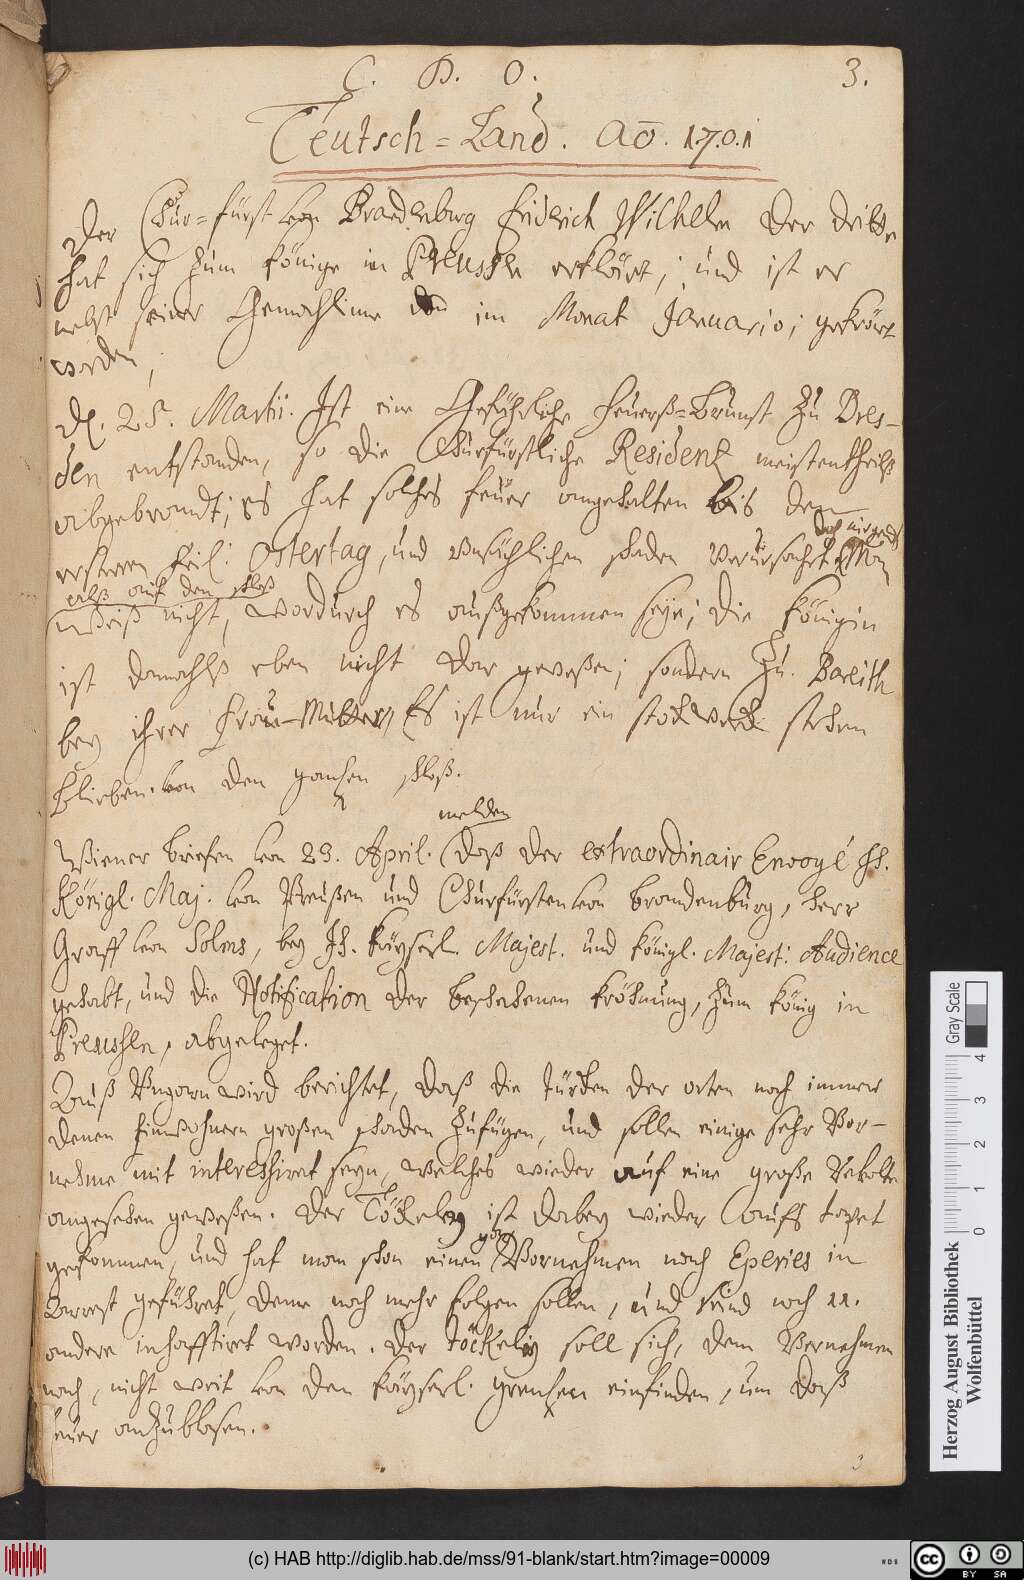 C. D. O. 3.
Teutsch=Land. Aō. 1701
Der Chur=fürst von Brandenburg Fridrich Wilhelm der dritte
hat sich zum Könige in Preussen erklärt, und ist er
nebst seiner Gemahlinne den im Monat Januario; gekrönt
worden,
D. 25. Martii. Ist eine Gefährliche Feuerß=Brunst zu Dres-
den entstanden, so die Churfürstliche Residentz meistentheilß
abgebrandt; es hat solches feuer angehalten bis den
ersteren heil: Ostertag, und unsächlichen schaden verursachet Man
doch nirgends
alß auf den schloß
weiß nicht, wordurch es außgekommen seye; die Königin
ist damahlß eben nicht dar geweßen; sondern zu Bareith
bey ihrer Frau-Mutter, Es ist nur ein stockwerck stehen
blieben. von den gantzen schloß.
melden
Wiener briefen von 23. April. daß der extraordinair Envoyé Ih.
Königl. Maj. von Preußen und Churfürsten von brandenburg, herr
Graff von Solms, bey Ih. Käyserl. Majest. und Königl. Majest: Audience
gehabt, und die Notification der beschehenen Kröhnung, zum König in
Preussen, abgeleget.
Auß Ungarn wird berichtet, daß die Türcken der orten noch immer
denen Einwohnern großen schaden zufügen, und sollen einige sehr Vor-
nehme mit interessiret seyn, welches wieder auf eine große Revolte
angesehen geweßen. Der Töckely ist dabey wieder aufs tapet
gekommen, und hat man schon einen Vornehmen nach Eperies in
gar
Arrest geführet, deme noch mehr folgen sollen, und seind noch 11.
andere inhafftiret worden. Der Töckely soll sich, dem Vernehmen
nach, nicht weit von den Käyserl. grentzen einfinden, um daß
feuer anzublasen.
3
Gray Scale
0 1 2 3 4
Herzog August Bibliothek
Wolfenbüttel
(c) HAB http://diglib.hab.de/mss/91-blank/start.htm?image=00009
WDB
cc BY SA